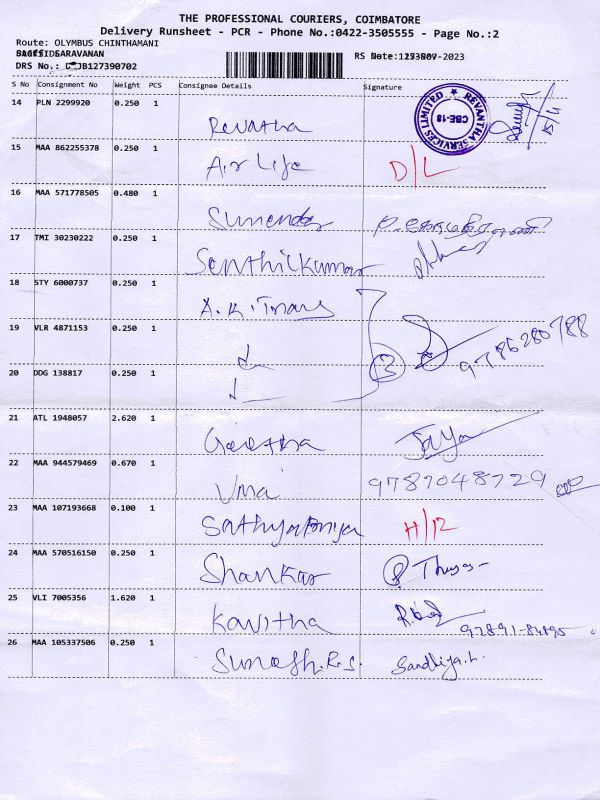 THE PROFESSIONAL COURIERS, COIMBATORE
Delivery Runsheet - PCR - Phone No.:0422-3505555 - Page No.:2
Route: OLYMBUS CHINTHAMANI
SARAVANAN
DRS No.: B127390702
RS Date: -2023
S No Consignment No Weight PCS Consignee Details Signature
REVANTHA SERVICES LIMITED
CBE-18
14 PLN 2299920 0.250 1
Revatha
15 MAA 862255378 0.250 1
Air Life D/L
16 MAA 571778505 0.480 1
Surendar
17 TMI 30230222 0.250 1
Senthilkumar
18 STY 6000737 0.250 1
19 VLR 4871153 0.250 1
3 9786280788
20 DDG 138817 0.250 1
21 ATL 1948057 2.620 1
Geetha Jaya
22 MAA 944579469 0.670 1
Uma 9787048729
23 MAA 107193668 0.100 1
Sathyapriya H/12
24 MAA 570516150 0.250 1
Shankar
25 VLI 7005356 1.620 1
Kavitha 97891-84895
26 MAA 105337506 0.250 1
Suresh.R.S. Sandhiya.L.